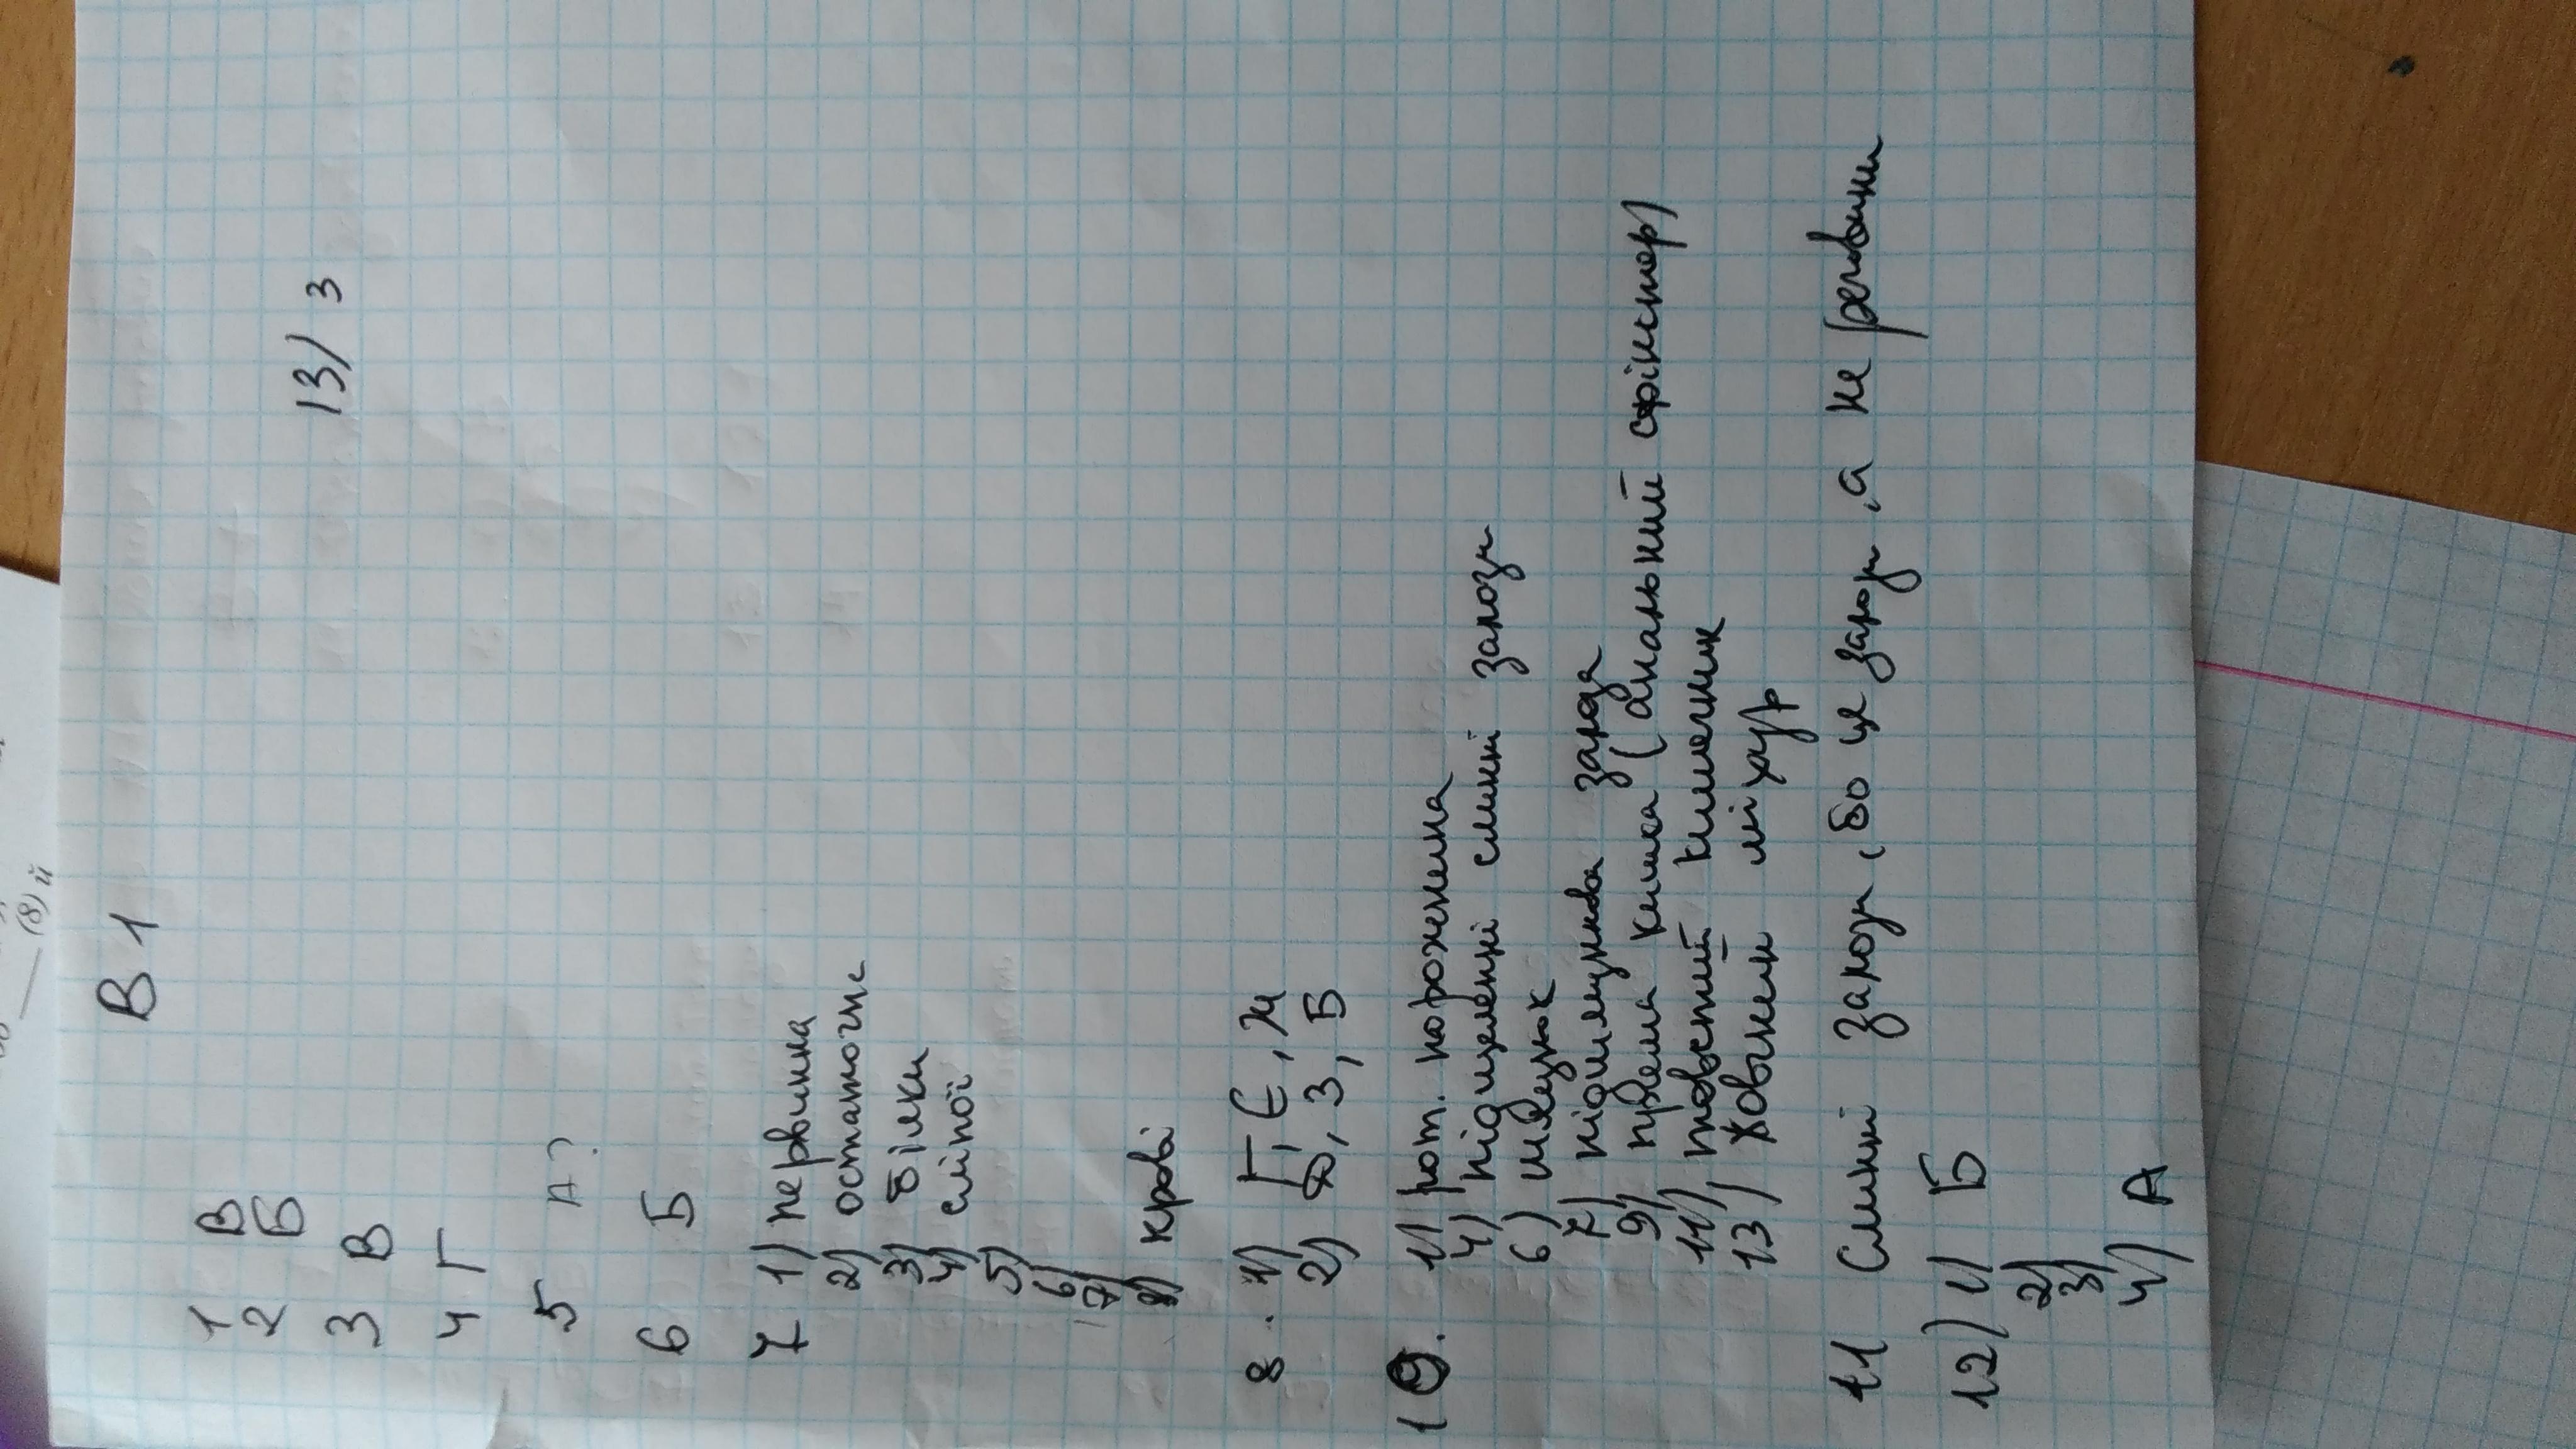 В 1
1 В
2 Б
3 В
4 Г
5 А?
6 Б
13) 3
7 1) первинна
2) остаточне
3) білки
4) сліпої
5)
6)
7)
8) крові
8. 1) Г, Є, Ж
2) Д, З, Б
10. 1) рот. порожнина
4) підщелепні слинні залози
6) шлунок
7) підшлункова
9) пряма кишка (анальний сфінктер)
11) товстий кишечник
13) Жовчний міхур
11 Слинні залози, бо це залози, а не речовини
12) 1) Б
2)
3)
4) А
(8) й